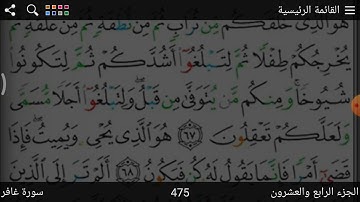 القائمة الرئيسية
هُوَ الَّذِي خَلَقَكُم مِّن تُرَابٍ ثُمَّ مِن نُّطْفَةٍ ثُمَّ مِنْ عَلَقَةٍ ثُمَّ
يُخْرِجُكُمْ طِفْلًا ثُمَّ لِتَبْلُغُوا أَشُدَّكُمْ ثُمَّ لِتَكُونُوا
شُيُوخًا وَمِنكُم مَّن يُتَوَفَّىٰ مِن قَبْلُ وَلِتَبْلُغُوا أَجَلًا مُّسَمًّى
وَلَعَلَّكُمْ تَعْقِلُونَ ٦٧ هُوَ الَّذِي يُحْيِي وَيُمِيتُ فَإِذَا
قَضَىٰ أَمْرًا فَإِنَّمَا يَقُولُ لَهُ كُن فَيَكُونُ ٦٨ أَلَمْ تَرَ إِلَى الَّذِينَ
الجزء الرابع والعشرون 475 سورة غافر